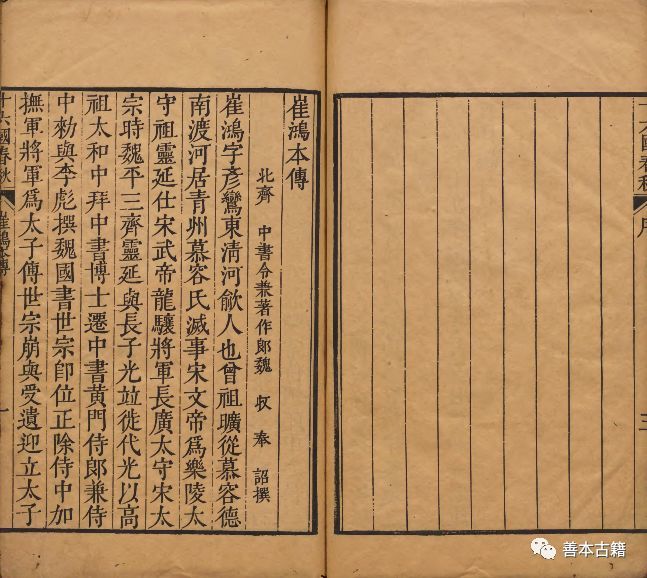 十六國春秋
序
三
崔鴻本傳
北齊 中書令兼著作郎魏 收 奉 詔撰
崔鴻字彥鸞東清河歈人也曾祖曠從慕容德
南渡河居青州慕容氏滅事宋文帝爲樂陵太
守祖靈延仕宋武帝龍驤將軍長廣太守宋太
宗時魏平三齊靈延與長子光竝徙代光以高
祖太和中拜中書博士遷中書黃門侍郎兼侍
中勑與李彪撰魏國書世宗卽位正除侍中加
撫軍將軍爲太子傅世宗崩與受遺迎立太子
十六國春秋
崔鴻本傳
一
善本古籍